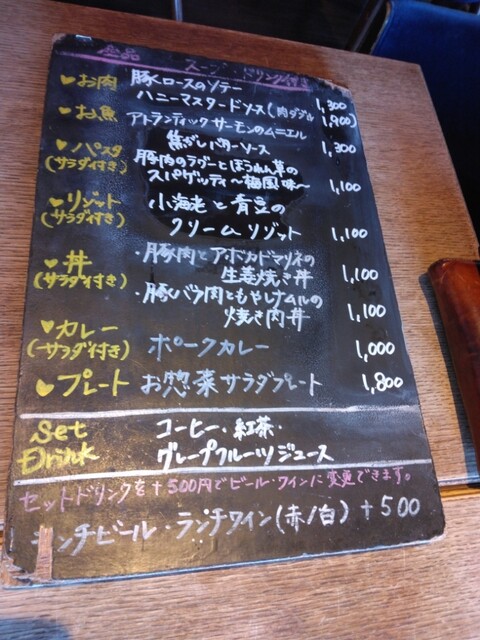 全品 スープ・ドリンク付き
♥お肉 豚ロースのソテー
ハニーマスタードソース 1,300
(肉ダブル 1,900)
♥お魚 アトランティックサーモンのムニエル
焦がしバターソース 1,300
♥パスタ 豚肉のラグーとほうれん草の
(サラダ付き) スパゲッティ〜梅風味〜 1,100
♥リゾット 小海老と青豆の
(サラダ付き) クリームリゾット 1,100
♥丼 ・豚肉とアボカドマリネの
(サラダ付き) 生姜焼き丼 1,100
・豚バラ肉ともやしナムルの
焼き肉丼 1,100
♥カレー
(サラダ付き) ポークカレー 1,000
♥プレート お惣菜サラダプレート 1,800
Set コーヒー・紅茶・
Drink グレープフルーツジュース
セットドリンクを+500円でビール・ワインに変更できます。
ランチビール・ランチワイン(赤/白) +500